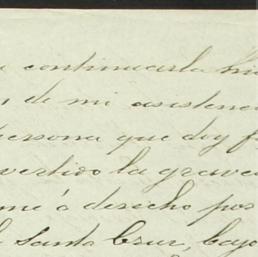 continuarla
de mi asistenci
persona que doy f
vertido la grave
me á derecho por
Santa Cruz, bajo